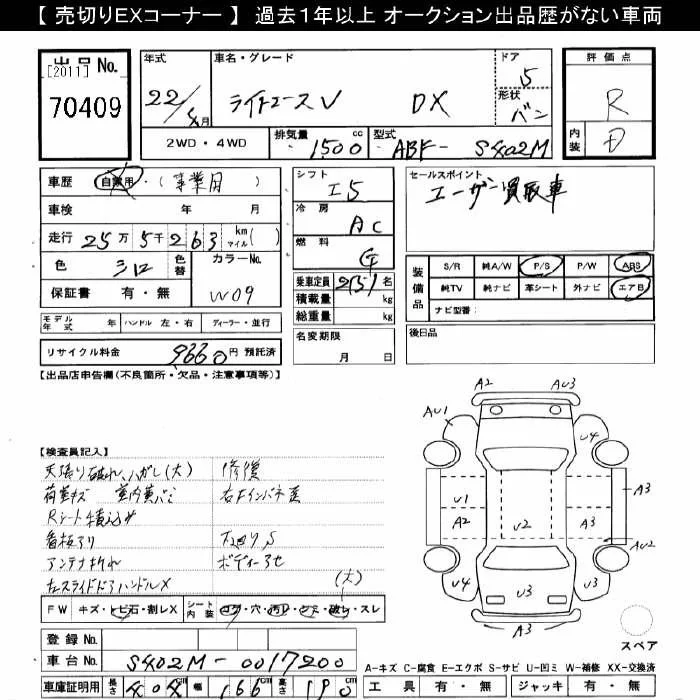 【 売切りEXコーナー 】 過去1年以上 オークション出品歴がない車両
出品 No.
[2011]
70409
年式 22/4月
車名・グレード ライトエースV DX
ドア 5
形状 バン
評価点 R
内装 D
2WD・4WD
排気量 1500 cc
型式 ABF- S402M
車歴 自家用・(事業用)
車検 年 月
走行 25万5千263 km マイル( )
色 シロ 色替
カラーNo. W09
保証書 有・無
シフト I5
冷房 AC
燃料 G
乗車定員 2(5) 名
積載量 kg
総重量 kg
名変期限 月 日
セールスポイント
ユーザー買取車
装備品
S/R 純A/W P/S P/W ABS
純TV 純ナビ 革シート 外ナビ エアB
ナビ型番:
後日品
モデル年式 年 ハンドル 左・右 ディーラー・並行
リサイクル料金 9660円 預託済
【出品店申告欄(不良箇所・欠品・注意事項等)】
【検査員記入】
天張り破れ、ハガレ(大) 修復
荷室キズ 室内黄バミ 右Fインパネ
Rシート積込み
看板アリ 下回りS
アンテナ折れ ボディーアセ
左スライドドアハンドルX (大)
FW キズ・トビ石・割レX
シート内装 コゲ・穴・汚レ・シミ・破レ・スレ
登録 No.
車台 No. S402M-0017200
車庫証明用 長さ 404 幅 166 高さ 190
A2 AU3
AU1 U4
U1 A3
A2 U2
AU2
U4 U3 U3
A3
スペア
A-キズ C-腐食 E-エクボ S-サビ U-凹ミ W-補修 XX-交換済
工具 有・無 ジャッキ 有・無